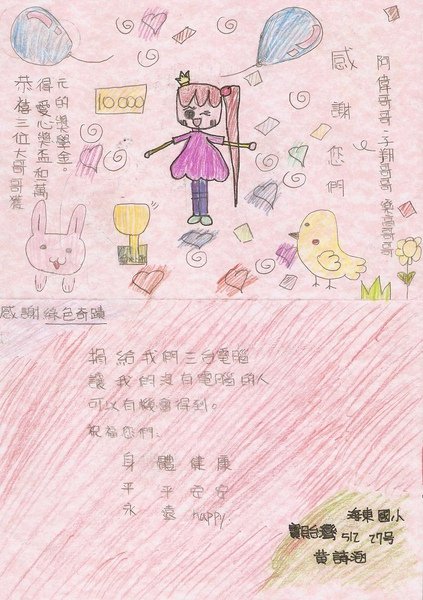 阿偉哥哥、子翔哥哥、樂高哥哥
感謝您們
恭禧三位大哥哥獲
得愛心獎盃和萬
元的獎學金。
10000
感謝綠色奇蹟
捐給我們三台電腦
讓我的沒有電腦的人
可以有機會得到。
祝福您們:
身體健康
平平安安
永遠happy.
海東國小
512 27号
黃詩涵